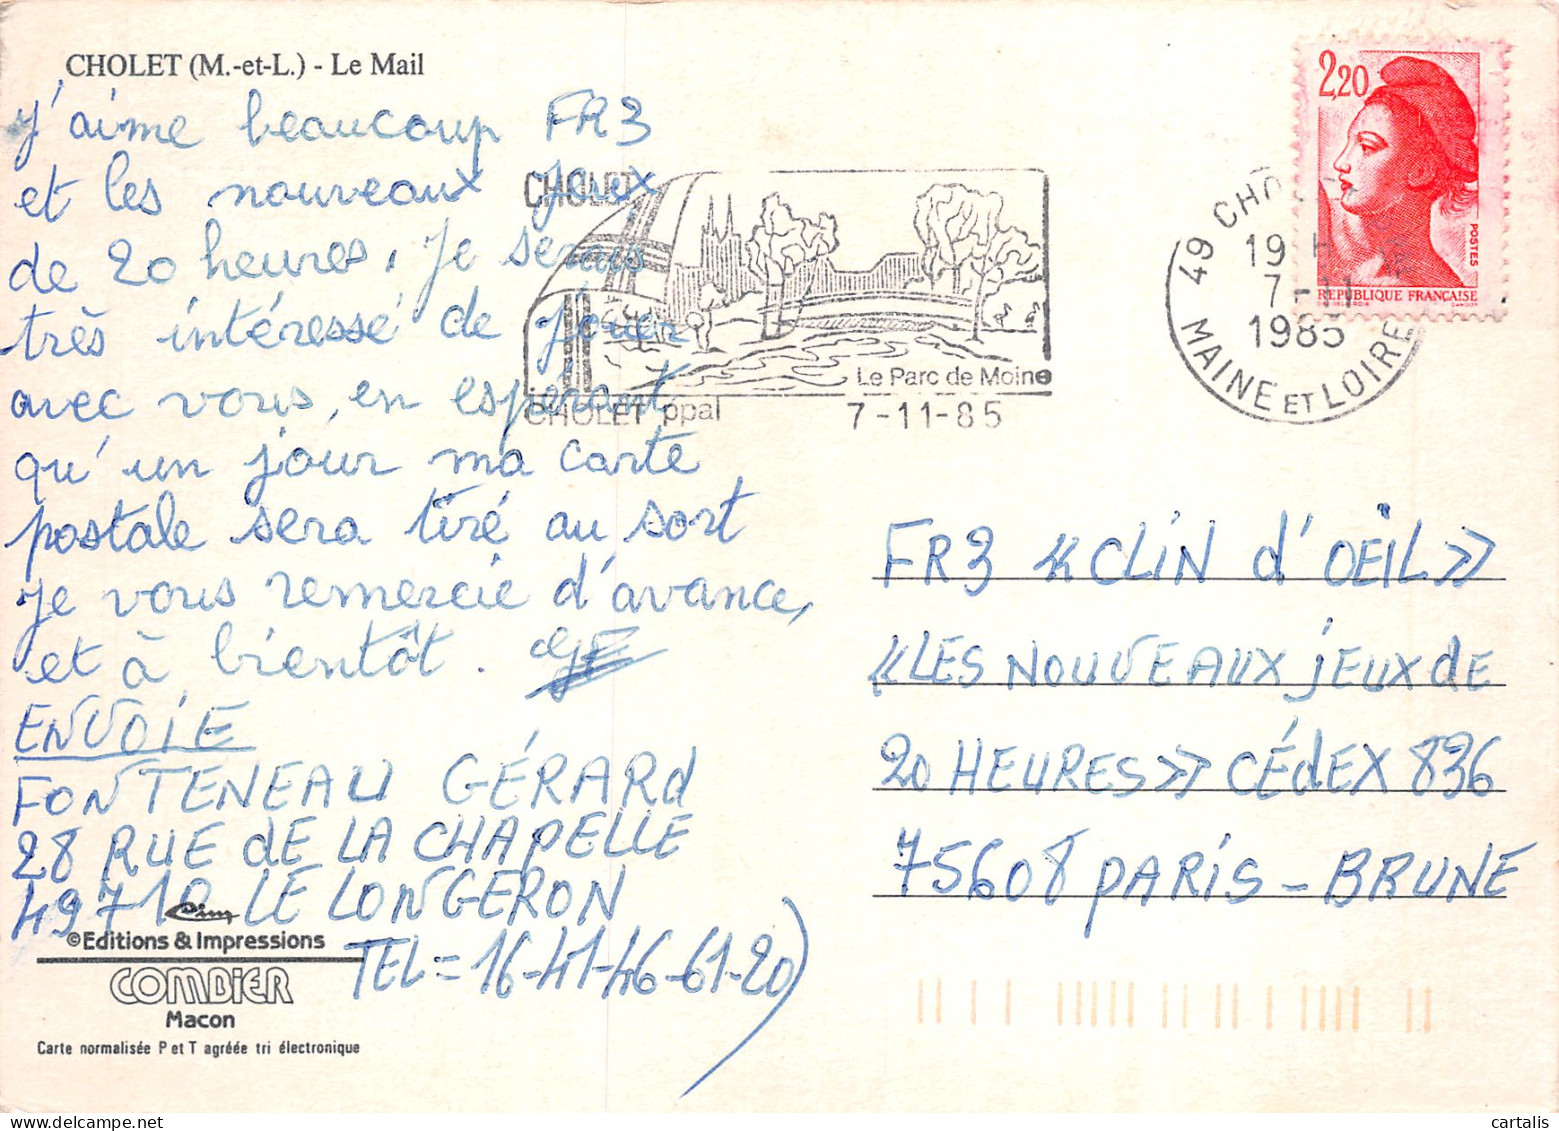 CHOLET (M.-et-L.) - Le Mail
j'aime beaucoup FR3
et les nouveaux jeux
de 20 heures, je serais
très intéressé de jouer
avec vous, en espérant
qu'un jour ma carte
postale sera tiré au sort
je vous remercie d'avance,
et à bientôt.
ENVOIE
FONTENEAU GÉRARd
28 RUE dE LA CHAPELLE
49710 LE LONGERON
TEL = 16-41-46-61-20)
©Editions & Impressions
COMBIER
Macon
Carte normalisée P et T agréée tri électronique
CHOLET
Le Parc de Moine
CHOLET ppal 7-11-85
49 CHO
19 H
7-11
1985
MAINE ET LOIRE
2,20
POSTES
REPUBLIQUE FRANÇAISE
FR3 «CLiN d'OEiL»
«LES NOUVEAUX jEUX dE
20 HEURES» CÉdEX 836
75608 PARiS - BRUNE
www.delcampe.net
cartalis